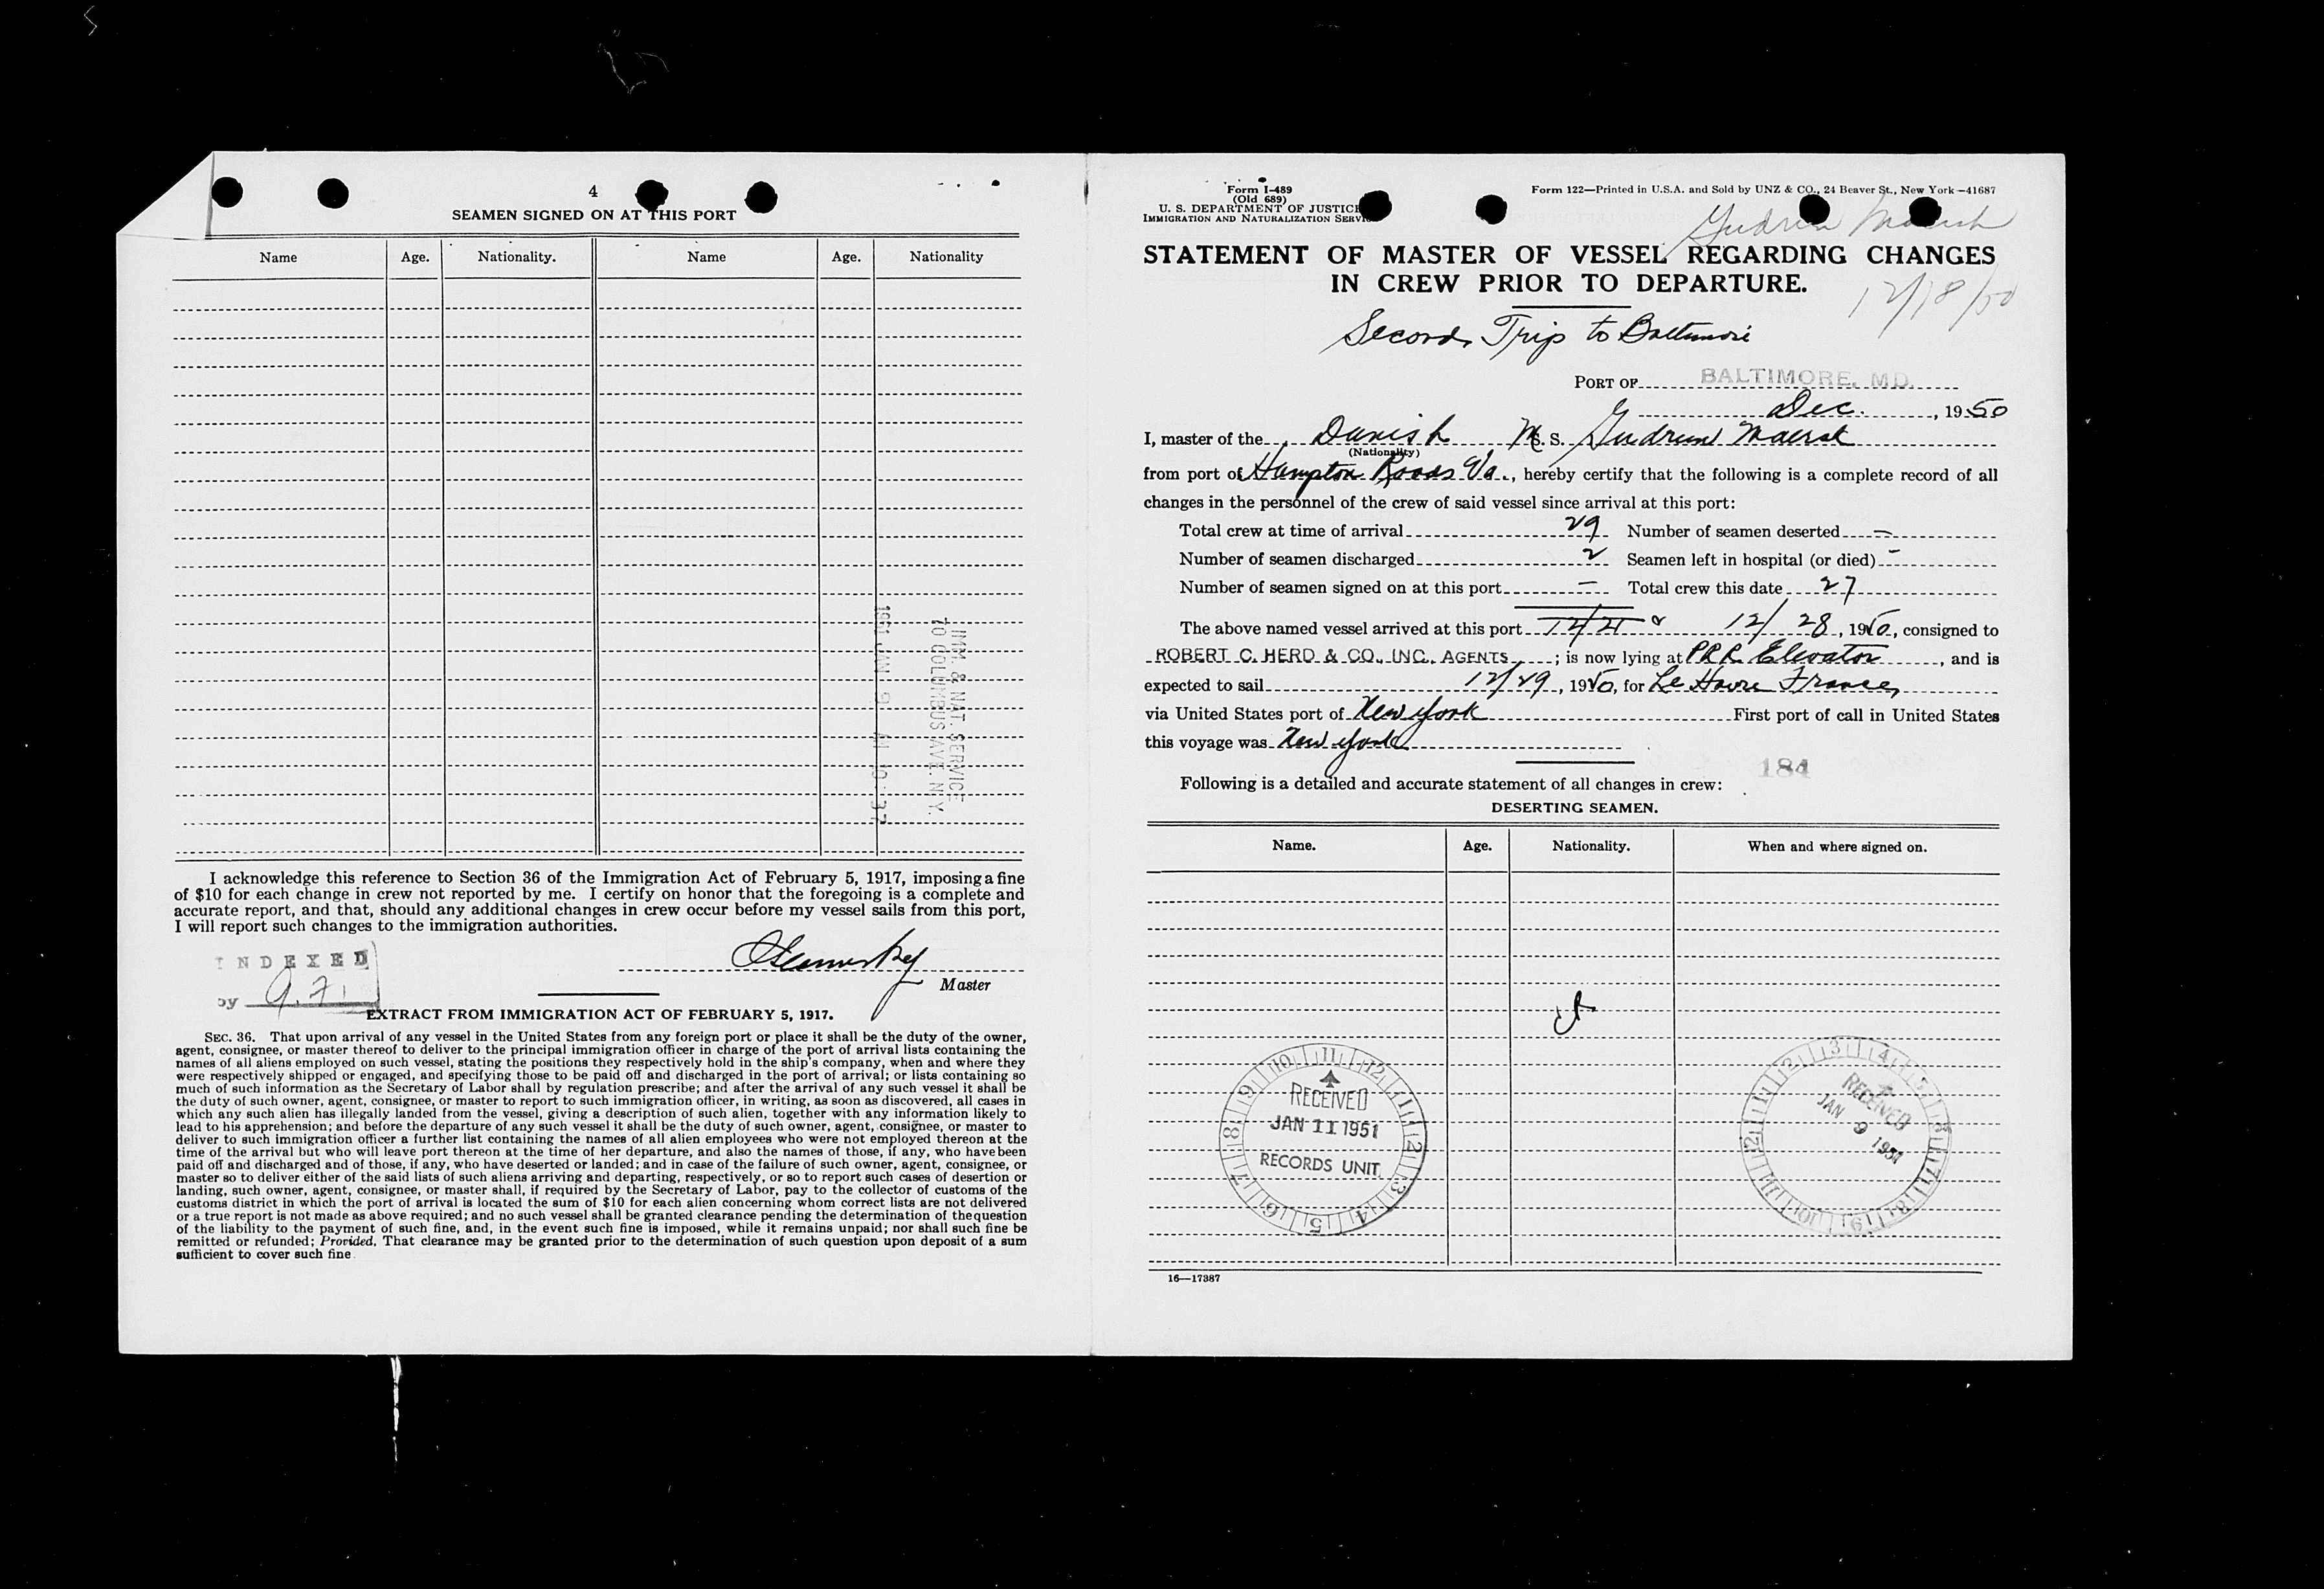 4
SEAMEN SIGNED ON AT THIS PORT
Name Age. Nationality. Name Age. Nationality
IMM. & NAT. SERVICE
70 COLUMBUS AVE. N.Y.
1951 JAN 9 AM 10:37
I acknowledge this reference to Section 36 of the Immigration Act of February 5, 1917, imposing a fine
of $10 for each change in crew not reported by me. I certify on honor that the foregoing is a complete and
accurate report, and that, should any additional changes in crew occur before my vessel sails from this port,
I will report such changes to the immigration authorities.
INDEXED
by
Master
EXTRACT FROM IMMIGRATION ACT OF FEBRUARY 5, 1917.
SEC. 36. That upon arrival of any vessel in the United States from any foreign port or place it shall be the duty of the owner,
agent, consignee, or master thereof to deliver to the principal immigration officer in charge of the port of arrival lists containing the
names of all aliens employed on such vessel, stating the positions they respectively hold in the ship's company, when and where they
were respectively shipped or engaged, and specifying those to be paid off and discharged in the port of arrival; or lists containing so
much of such information as the Secretary of Labor shall by regulation prescribe; and after the arrival of any such vessel it shall be
the duty of such owner, agent, consignee, or master to report to such immigration officer, in writing, as soon as discovered, all cases in
which any such alien has illegally landed from the vessel, giving a description of such alien, together with any information likely to
lead to his apprehension; and before the departure of any such vessel it shall be the duty of such owner, agent, consignee, or master to
deliver to such immigration officer a further list containing the names of all alien employees who were not employed thereon at the
time of the arrival but who will leave port thereon at the time of her departure, and also the names of those, if any, who have been
paid off and discharged and of those, if any, who have deserted or landed; and in case of the failure of such owner, agent, consignee, or
master so to deliver either of the said lists of such aliens arriving and departing, respectively, or so to report such cases of desertion or
landing, such owner, agent, consignee, or master shall, if required by the Secretary of Labor, pay to the collector of customs of the
customs district in which the port of arrival is located the sum of $10 for each alien concerning whom correct lists are not delivered
or a true report is not made as above required; and no such vessel shall be granted clearance pending the determination of the question
of the liability to the payment of such fine, and, in the event such fine is imposed, while it remains unpaid; nor shall such fine be
remitted or refunded; Provided, That clearance may be granted prior to the determination of such question upon deposit of a sum
sufficient to cover such fine
Form I-489
(Old 689)
U. S. DEPARTMENT OF JUSTICE
IMMIGRATION AND NATURALIZATION SERVICE
Form 122—Printed in U.S.A. and Sold by UNZ & CO., 24 Beaver St., New York—41687
Gudrun Maersk
STATEMENT OF MASTER OF VESSEL REGARDING CHANGES
IN CREW PRIOR TO DEPARTURE.
12/18/50
Second Trip to Baltimore
PORT OF BALTIMORE, MD.
Dec. , 1950
I, master of the Danish M. S. Gudrun Maersk
(Nationality)
from port of Hampton Roads Va., hereby certify that the following is a complete record of all
changes in the personnel of the crew of said vessel since arrival at this port:
Total crew at time of arrival 29 Number of seamen deserted —
Number of seamen discharged 2 Seamen left in hospital (or died) -
Number of seamen signed on at this port — Total crew this date 27
The above named vessel arrived at this port 12/21 & 12/28, 1950, consigned to
ROBERT C. HERD & CO., INC., AGENTS ; is now lying at PRR Elevator , and is
expected to sail 12/29, 1950, for Le Havre France,
via United States port of New York First port of call in United States
this voyage was New York
184
Following is a detailed and accurate statement of all changes in crew:
DESERTING SEAMEN.
Name. Age. Nationality. When and where signed on.
RECEIVED
JAN 11 1951
RECORDS UNIT
RECEIVED
JAN 9 1951
16—17387